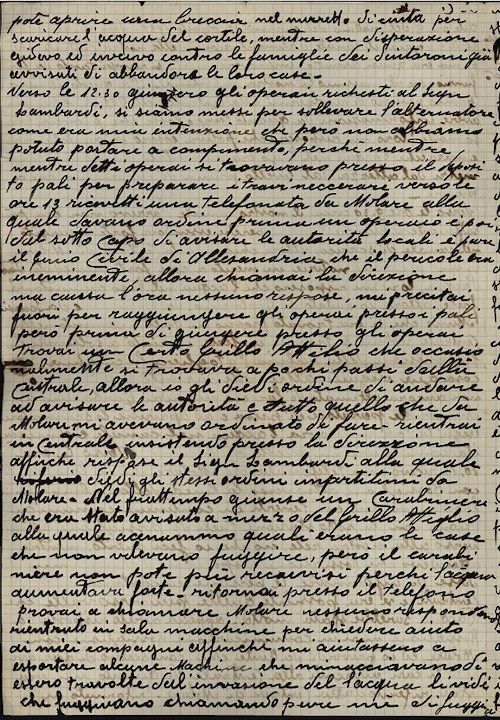 pote aprire una breccia nel muretto di cinta per
scaricare l'acqua del cortile, mentre con disperazione
gridavo ed urlavo contro le famiglie dei dintorni già
avvisati di abbandonare le loro case -
Verso le 12.30 giunsero gli operai richesti al Sign
Lombardi, si siamo messi per sollevare l'alternatore
come era mia intenzione che però non abbiamo
potuto portare a compimento, perchè mentre
mentre detti operai si trovavano presso il deposi
to pali per preparare i travi neccerare verso le
ore 13 ricevetti una telefonata da Molare alla
quale davano ordine prima un operaio e poi
dal sotto capo di avisare le autorità locali e pure
il Genio Civile di Allesandria che il pericolo era
ineminente, allora chiamai la direzione
ma causa l'ora nessuno rispose, mi precitai
fuori per raggiungere gli operai presso i pali
però prima di giungere presso gli operai
trovai un Certo Grillo Attilio che occasio
nalmente si trovava a pochi passi dalla
Centrale, allora io gli diedi ordine di andare
ad avisare le autorità e tutto quello che da
Molare mi avevano ordinato di fare - rientrai
in Centrale insistendo presso la direzzione
affinchè rispose il Sign Lombardi alla quale
diedi gli stessi ordini impartitimi da
Molare - Nel frattempo giunse un Carabiniere
che era stato avisato a mezzo del Grillo Attiglio
alla quale acennammo quali erano le case
che non volevano fuggire, però il carabi
niere non pote più recarvisi perchè l'acqua
aumentava forte - ritornai presso il telefono
provai a chiamare Molare nessuno rispondeva
rientrato in sala macchine per chiedere aiuto
ai miei compagni affinchè mi aiutassero a
esportare alcune Machine che minacciavano di
essere travolte dall'invasione del l'acqua li vidi
che fuggivano chiamando pure me di fuggir